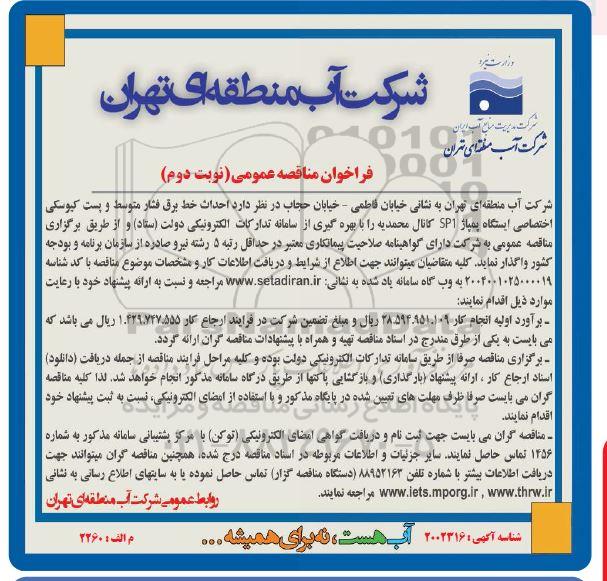 وزارت نیرو
شرکت مدیریت منابع آب ایران
شرکت آب منطقه‌ای تهران
شرکت آب منطقه‌ای تهران
فراخوان مناقصه عمومی(نوبت دوم)
شرکت آب منطقه‌ای تهران به نشانی خیابان فاطمی - خیابان حجاب در نظر دارد احداث خط برق فشار متوسط و پست کیوسکی
اختصاصی ایستگاه پمپاژ SP1 کانال محمدیه را با بهره گیری از سامانه تدارکات الکترونیکی دولت (ستاد) و از طریق برگزاری
مناقصه عمومی به شرکت دارای گواهینامه صلاحیت پیمانکاری معتبر در حداقل رتبه ۵ رشته نیرو صادره از سازمان برنامه و بودجه
کشور واگذار نماید. کلیه متقاضیان میتوانند جهت اطلاع از شرایط و دریافت اطلاعات کار و مشخصات موضوع مناقصه با کد شناسه
۲۰۰۴۰۰۱۰۲۵۰۰۰۰۱۹ به وب گاه سامانه یاد شده به نشانی: www.setadiran.ir مراجعه و نسبت به ارائه پیشنهاد خود با رعایت
موارد ذیل اقدام نمایند:
ـ برآورد اولیه انجام کار ۲۸.۵۹۴.۹۵۱.۱۰۹ ریال و مبلغ تضمین شرکت در فرایند ارجاع کار ۱.۴۲۹.۷۴۷.۵۵۵ ریال می باشد که
می بایست به یکی از طرق مندرج در اسناد مناقصه تهیه و همراه با پیشنهادات مناقصه گران ارائه گردد.
ـ برگزاری مناقصه صرفا از طریق سامانه تدارکات الکترونیکی دولت بوده و کلیه مراحل فرایند مناقصه از جمله دریافت (دانلود)
اسناد ارجاع کار ، ارائه پیشنهاد (بارگذاری) و بازگشایی پاکتها از طریق درگاه سامانه مذکور انجام خواهد شد. لذا کلیه مناقصه
گران می بایست صرفا ظرف مهلت های تعیین شده در پایگاه مذکور و با استفاده از امضای الکترونیکی، نسبت به ثبت پیشنهاد خود
اقدام نمایند.
ـ مناقصه گران می بایست جهت ثبت نام و دریافت گواهی امضای الکترونیکی (توکن) با مرکز پشتیبانی سامانه مذکور به شماره
۱۴۵۶ تماس حاصل نمایند. سایر جزئیات و اطلاعات مربوطه در اسناد مناقصه درج شده، همچنین مناقصه گران میتوانند جهت
دریافت اطلاعات بیشتر با شماره تلفن ۸۸۹۵۲۱۶۳ (دستگاه مناقصه گزار) تماس حاصل نموده یا به سایتهای اطلاع رسانی به نشانی
www.iets.mporg.ir , www.thrw.ir مراجعه نمایند.
روابط عمومی شرکت آب منطقه‌ای تهران
شناسه آگهی : ۲۰۰۲۳۱۶
آب هست، نه برای همیشه ...
م الف : ۲۲۶۰